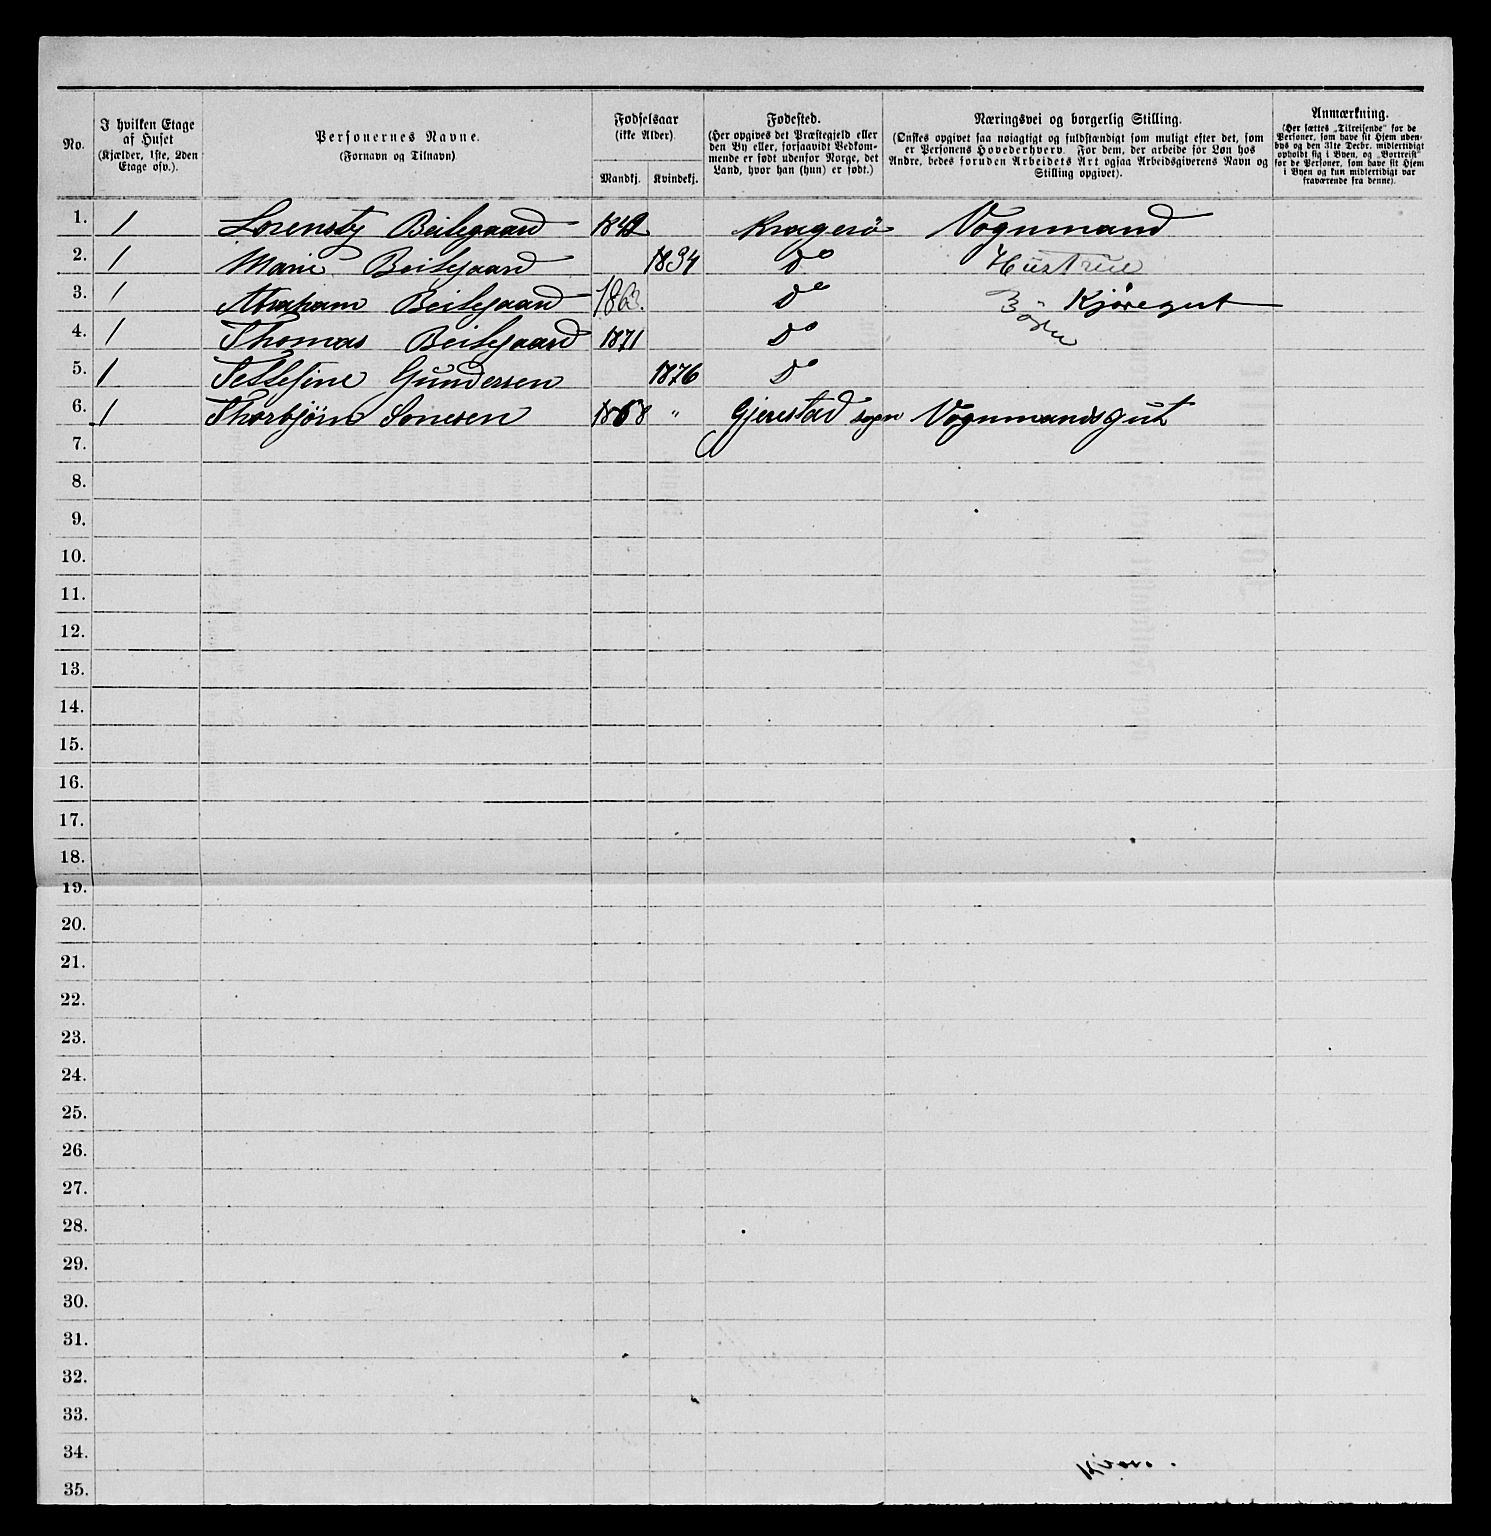 No.
I hvilken Etage af Huset (Kjælder, 1ste, 2den Etage osv.).
Personernes Navne. (Fornavn og Tilnavn)
Fødselsaar (ikke Alder)
Mandkj. Kvindekj.
Fødested. (Her opgives det Præstegjeld eller den By eller, forsaavidt Vedkommende er født udenfor Norge, det Land, hvor han (hun) er født.)
Næringsvei og borgerlig Stilling. (Ønskes opgivet saa nøiagtigt og fuldstændigt som muligt efter det, som er Personens Hovederhverv. For dem, der arbeide for Løn hos Andre, bedes foruden Arbeidets Art ogsaa Arbeidsgiverens Navn og Stilling opgivet).
Anmærkning. (Her sættes „Tilreisende" for de Personer, som have sit Hjem udenbys og den 31te Decbr. midlertidigt opholdt sig i Byen, og „Bortreist" for de Personer, som have sit Hjem i Byen og kun midlertidigt var fraværende fra denne).
1. 1 Beilegaard 1842 Kragerö Vognmand
2. 1 Marie Beilegaard 1834 Do Hustrue
3. 1 Abraham Beilegaard 1863. Do Börn Kjöregut
4. 1 Thomas Beilegaard 1871 Do
5. 1 Gundersen 1876 Do
6. 1 Thorbjörn Sonesen 1868 " Gjerestad sogn Vognmandsgut
7.
8.
9.
10.
11.
12.
13.
14.
15.
16.
17.
18.
19.
20.
21.
22.
23.
24.
25.
26.
27.
28.
29.
30.
31.
32.
33.
34.
35.